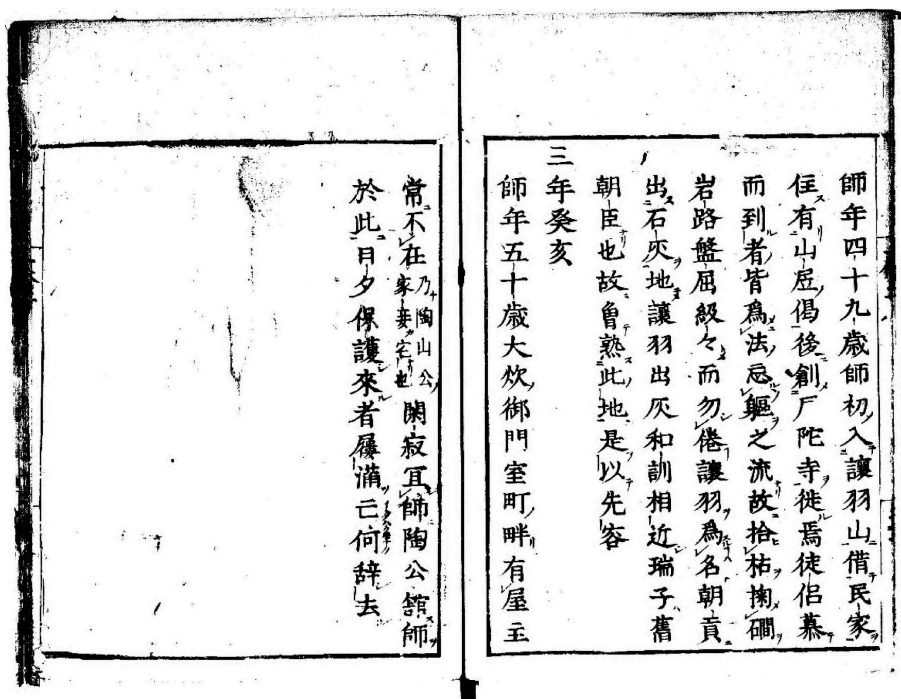 師年四十九歳師初入讓羽山借民家
住有山居偈後創尸陀寺徙焉徒侶慕
而到者皆爲法忘軀之流故拾枯掬磵
岩路盤屈級々而勿倦讓羽爲名朝貢
出石灰地讓羽出灰和訓相近瑞子舊
朝臣也故曾熟此地是以先容
三年癸亥
師年五十歳大炊御門室町畔有屋主
常不在乃陶山公家妾宅也閑寂宜師陶公舘師
於此日夕保護來者屨滿亡何辞去